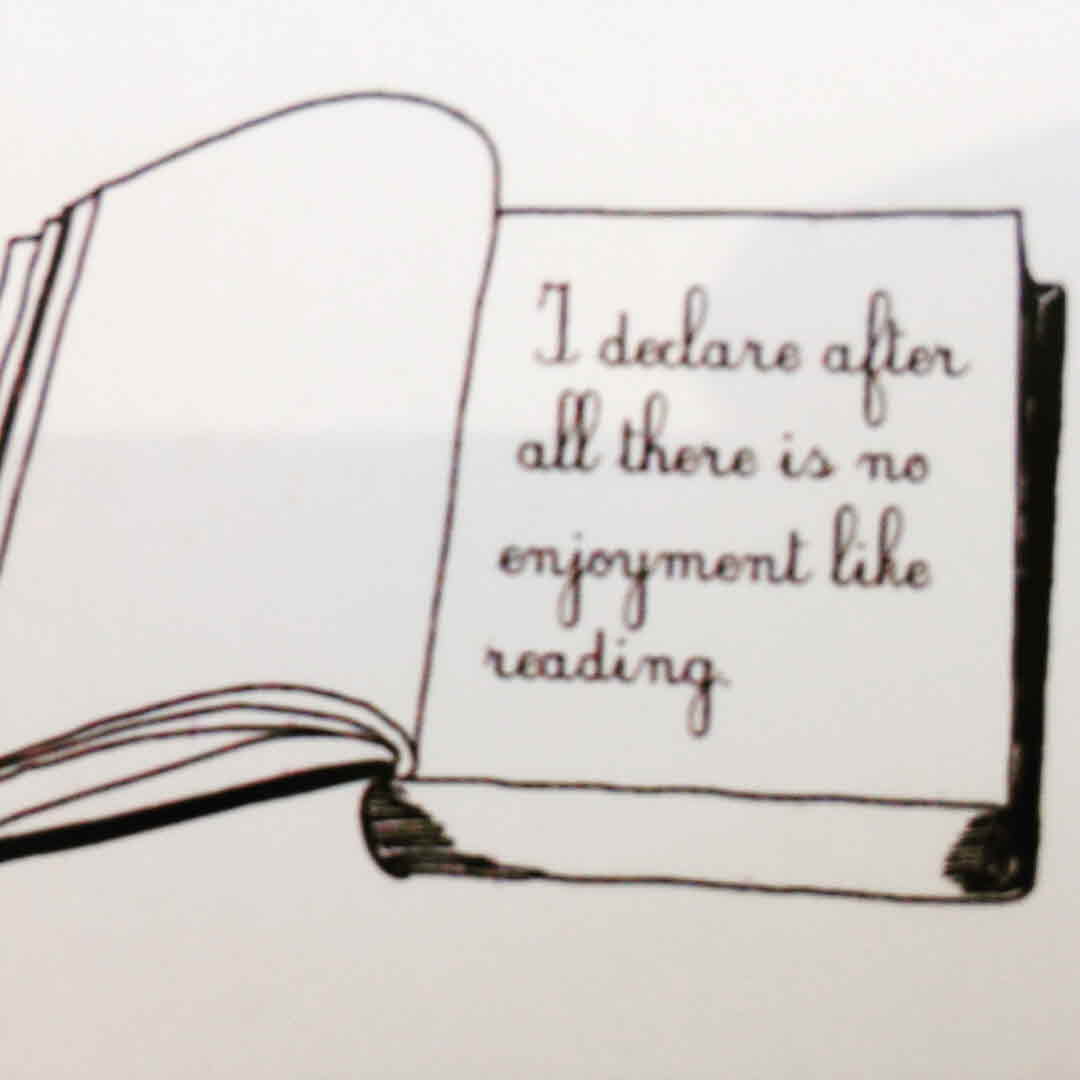 I declare after
all there is no
enjoyment like
reading.